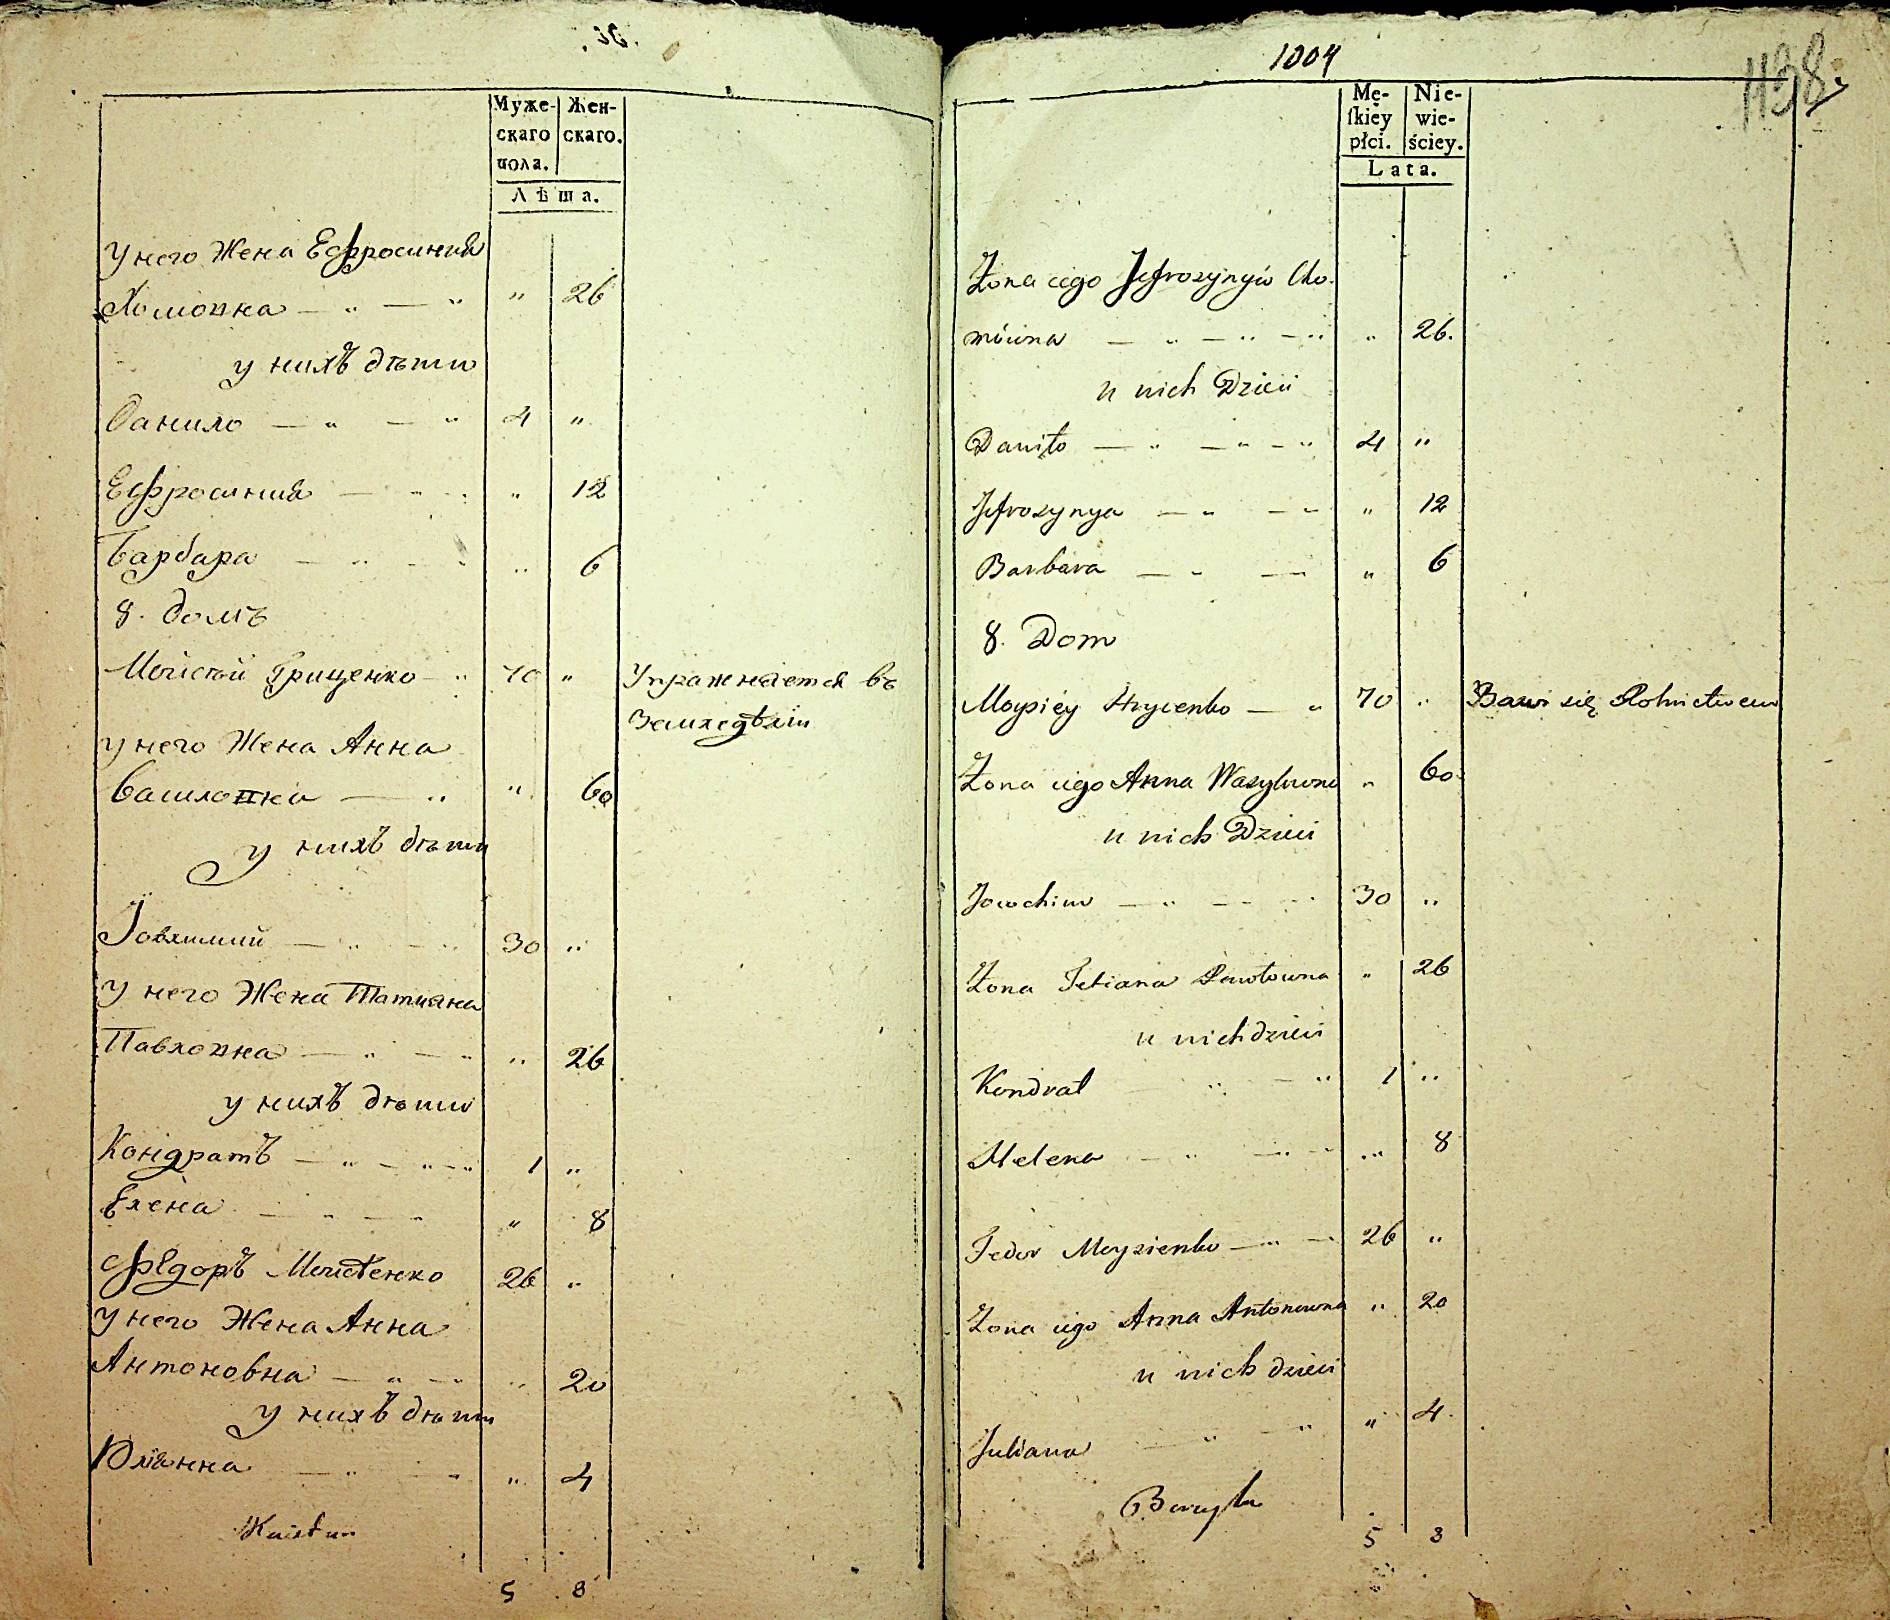 1004
1138.
Муже-
скаго
пола.
Жен-
скаго.
Лѣта.
У него Жена Ефросиния
Хомовна — „ — „ „ 26
у нихъ дѣти
Данило — „ — „ 4 „
Ефросиния — „ „ 12
Барбара — „ — „ „ 6
8. домъ
Мойсей Гриценко — „ 70 „ Упражняется въ
Земледѣлїи
у него Жена Анна
Василовна — „ „ 60
у нихъ дѣти
30 „
У него Жена Татияна
Павловна — „ — „ „ 26
у нихъ дѣти
Кондратъ — „ — „ — „ 1 „
Елена — „ — „ „ 8
Федоръ Мойсеенко 26 „
У него Жена Анна
Антоновна — „ — „ „ 20
у нихъ дѣти
Юлїанна — „ — „ „ 4
5 8
Mę-
ſkiey
płci.
Nie-
wie-
ściey.
Lata.
Żona iego Jefrozynyia Cho-
mówna — „ — „ — „ „ 26.
u nich Dzieci
Daniło — „ — „ — „ 4 „
Jefrozynya — „ — „ „ 12
Barbara — „ — „ „ 6
8. Dom
Moysiey Hrycenko — „ 70 „ Bawi się Rolnictwem
Żona iego Anna Wasylowna „ 60
u nich Dzieci
Joachim — „ — „ 30 „
Żona Tetiana Pawłowna „ 26
u nich dzieci
Kondrat „ — „ 1 „
Helena — „ — „ „ 8
Fedor Moysienko — „ — 26 „
Żona iego Anna Antonowna „ 20
u nich dzieci
Juliana — „ — „ „ 4
5 8